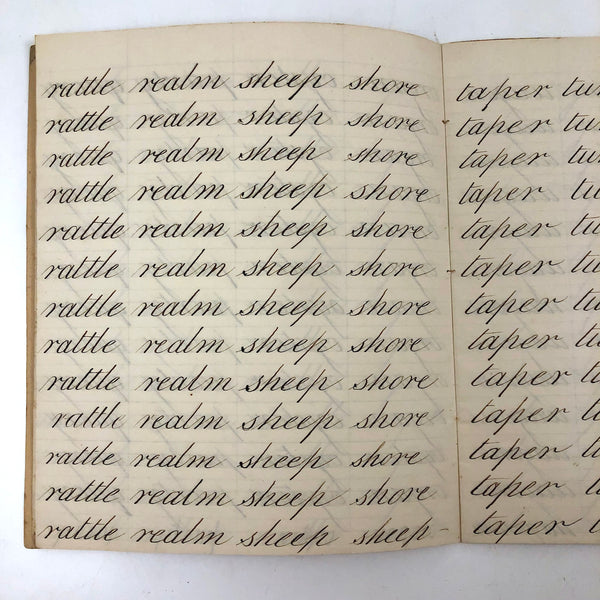 rattle realm sheep shore
rattle realm sheep shore
rattle realm sheep shore
rattle realm sheep shore
rattle realm sheep shore
rattle realm sheep shore
rattle realm sheep shore
rattle realm sheep shore
rattle realm sheep shore
rattle realm sheep shore
rattle realm sheep shore
rattle realm sheep shore
rattle realm sheep sheep
taper
taper
taper
taper
taper
taper
taper
taper
taper
taper
taper
taper
taper